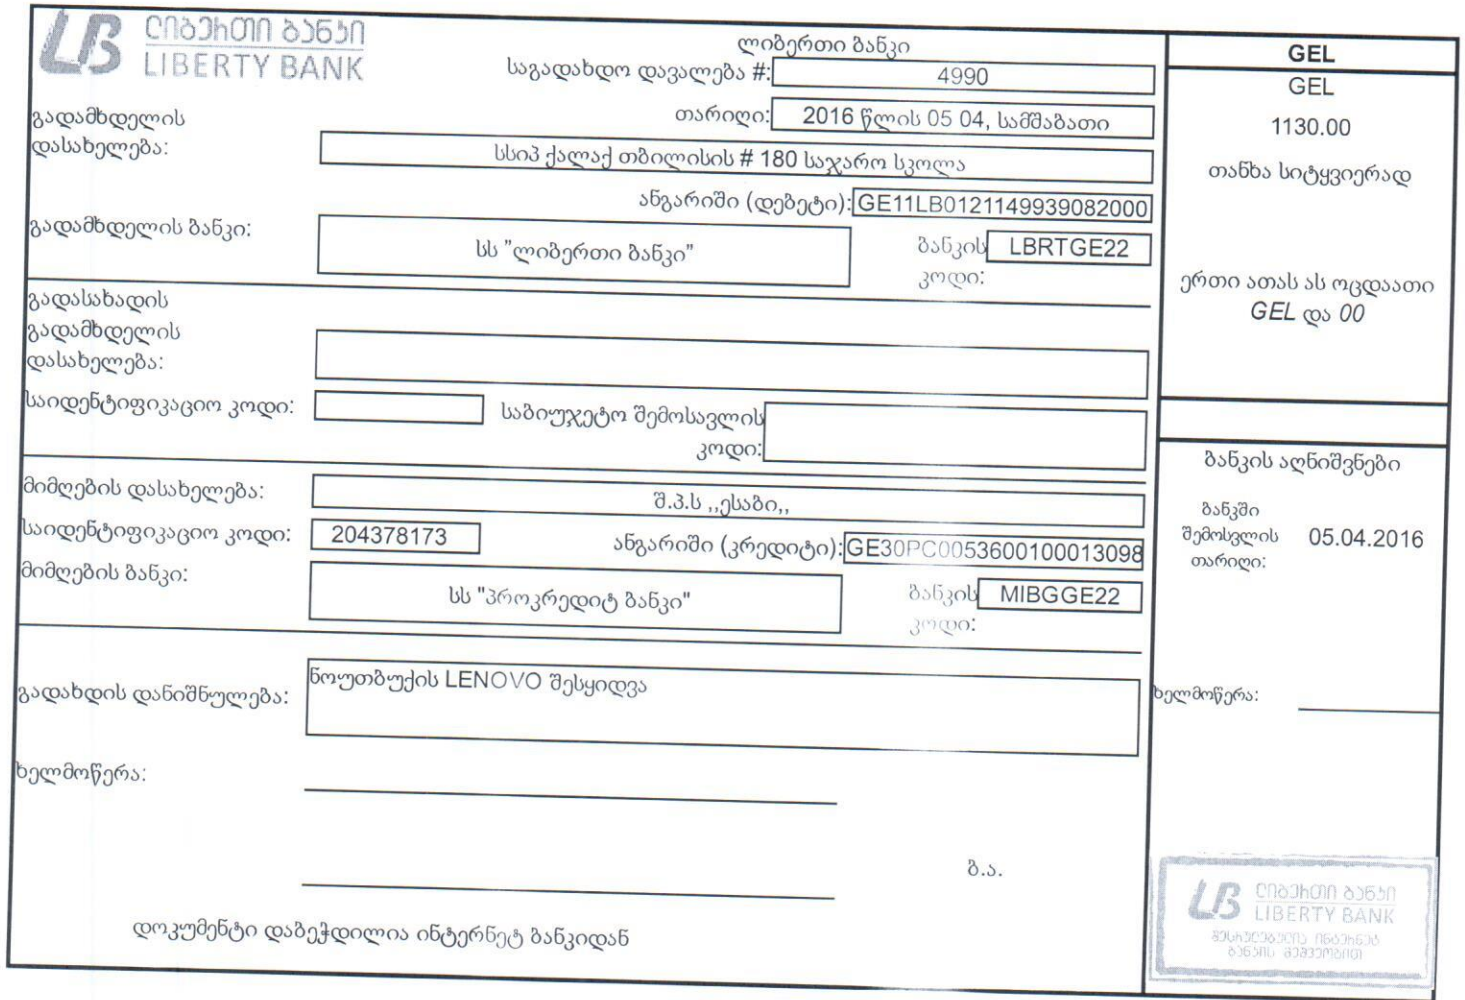 ლიბერთი ბანკი
LIBERTY BANK
ლიბერთი ბანკი
საგადახდო დავალება #: 4990
თარიღი: 2016 წლის 05 04, სამშაბათი
გადამხდელის
დასახელება: სსიპ ქალაქ თბილისის # 180 საჯარო სკოლა
ანგარიში (დებეტი): GE11LB0121149939082000
გადამხდელის ბანკი: სს "ლიბერთი ბანკი" ბანკის LBRTGE22
კოდი:
გადასახადის
გადამხდელის
დასახელება:
საიდენტიფიკაციო კოდი: საბიუჯეტო შემოსავლის
კოდი:
მიმღების დასახელება: შ.პ.ს ,,ესაბი,,
საიდენტიფიკაციო კოდი: 204378173 ანგარიში (კრედიტი): GE30PC0053600100013098
მიმღების ბანკი: სს "პროკრედიტ ბანკი" ბანკის MIBGGE22
კოდი:
გადახდის დანიშნულება: ნოუთბუქის LENOVO შესყიდვა
ხელმოწერა:
ბ.ა.
დოკუმენტი დაბეჭდილია ინტერნეტ ბანკიდან
GEL
GEL
1130.00
თანხა სიტყვიერად
ერთი ათას ას ოცდაათი
GEL და 00
ბანკის აღნიშვნები
ბანკში
შემოსვლის 05.04.2016
თარიღი:
ხელმოწერა:
ლიბერთი ბანკი
LIBERTY BANK
შესრულებულია ინტერნეტ
ბანკის მეშვეობით